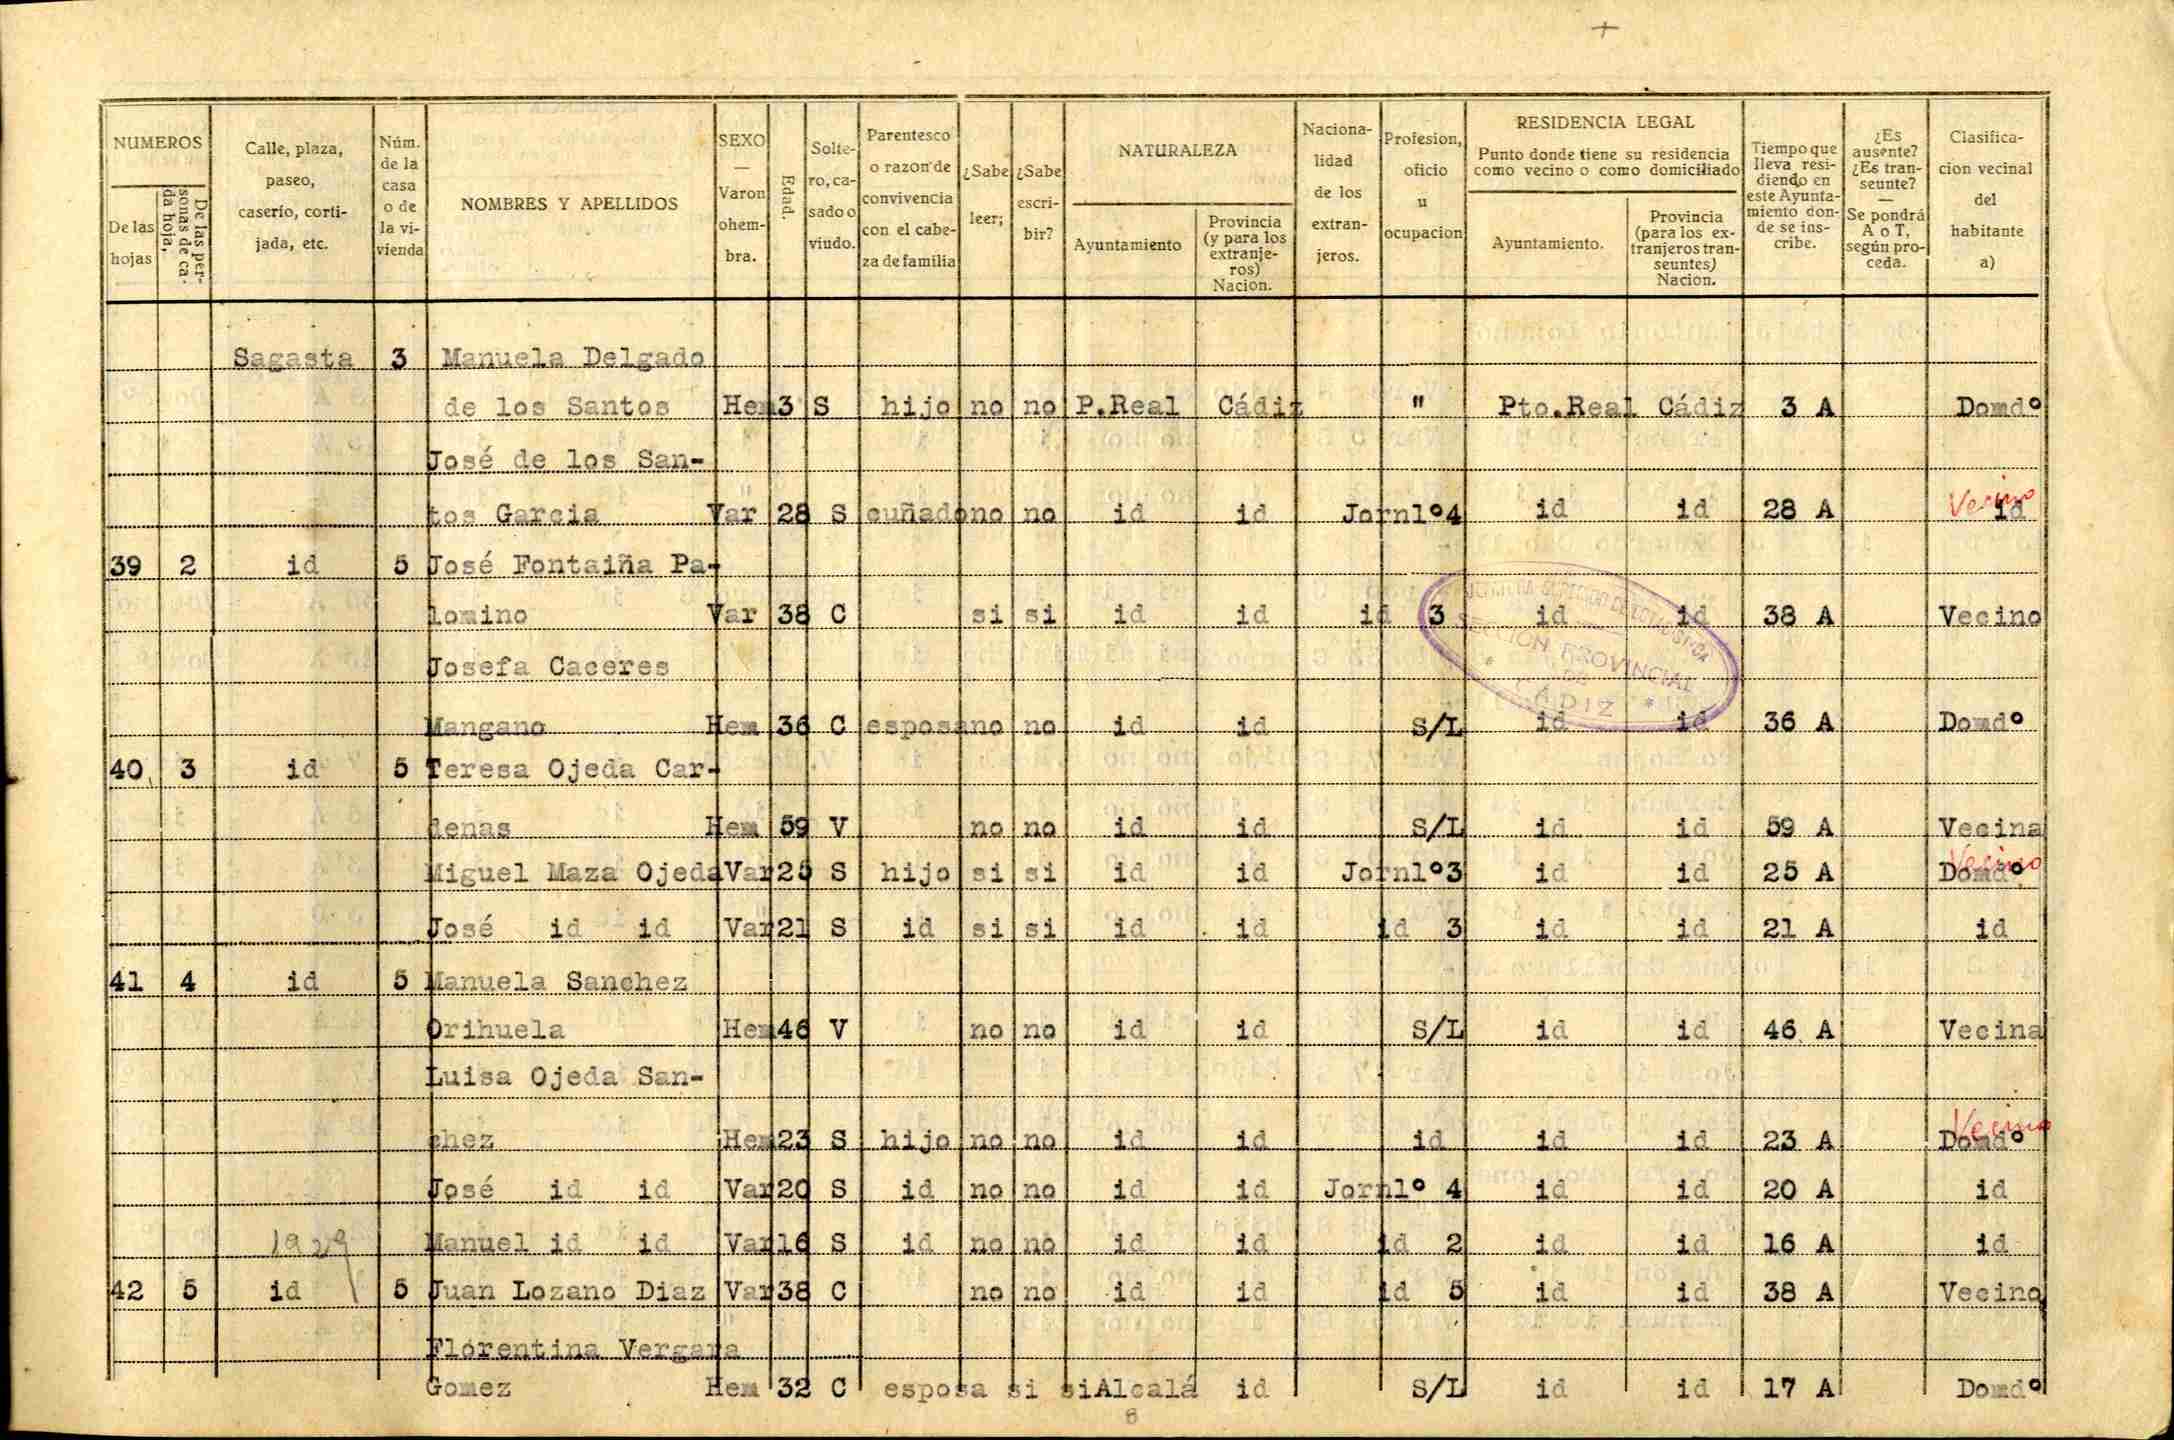 NUMEROS
De las hojas
De las personas de cada hoja,
Calle, plaza, paseo, caserío, cortijada, etc.
Núm. de la casa o de la vivienda
NOMBRES Y APELLIDOS
SEXO — Varon o hembra.
Edad.
Soltero, casado o viudo.
Parentesco o razon de convivencia con el cabeza de familia
¿Sabe leer;
¿Sabe escribir?
NATURALEZA
Ayuntamiento
Provincia (y para los extranjeros) Nacion.
Nacionalidad de los extranjeros.
Profesion, oficio u ocupacion
RESIDENCIA LEGAL
Punto donde tiene su residencia como vecino o como domiciliado
Ayuntamiento.
Provincia (para los extranjeros transeuntes) Nacion.
Tiempo que lleva residiendo en este Ayuntamiento donde se inscribe.
¿Es ausente? ¿Es transeunte? — Se pondrá A o T, según proceda.
Clasificacion vecinal del habitante a)
Sagasta 3 Manuela Delgado
de los Santos Hem 3 S hijo no no P.Real Cádiz " Pto.Real Cádiz 3 A Domdº
José de los San-
tos Garcia Var 28 S cuñado no no id id Jornlº4 id id 28 A id Vecino
39 2 id 5 José Fontaiña Pa-
lomino Var 38 C si si id id id 3 id id 38 A Vecino
Josefa Caceres
Mangano Hem 36 C esposa no no id id S/L id id 36 A Domdº
SECCION PROVINCIAL
DE
* CADIZ *
40 3 id 5 Teresa Ojeda Car-
denas Hem 59 V no no id id S/L id id 59 A Vecina
Miguel Maza Ojeda Var 25 S hijo si si id id Jornlº3 id id 25 A Domdº Vecino
José id id Var 21 S id si si id id id 3 id id 21 A id
41 4 id 5 Manuela Sanchez
Orihuela Hem 46 V no no id id S/L id id 46 A Vecina
Luisa Ojeda San-
chez Hem 23 S hijo no no id id id id id 23 A Domdº Vecino
José id id Var 20 S id no no id id Jornlº 4 id id 20 A id
1929 Manuel id id Var 16 S id no no id id id 2 id id 16 A id
42 5 id 5 Juan Lozano Diaz Var 38 C no no id id id 5 id id 38 A Vecino
Florentina Vergara
Gomez Hem 32 C esposa si si Alcalá id S/L id id 17 A Domdº
8